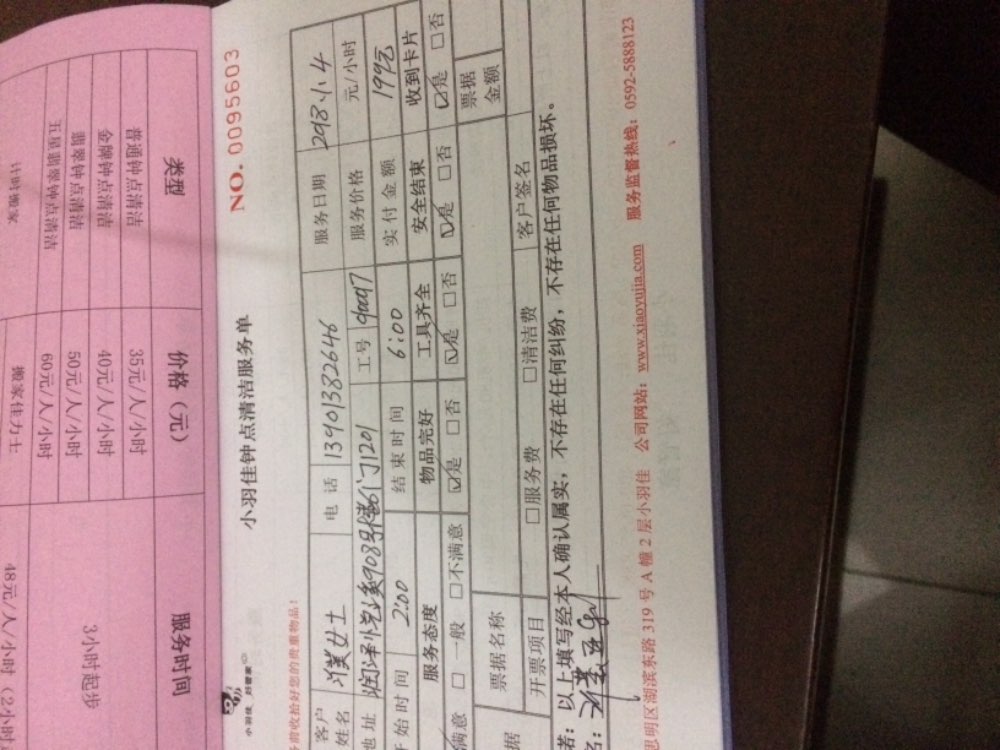 小羽佳钟点清洁服务单
NO. 0095603
小羽佳 好管家
务前收拾好您的贵重物品!
客户姓名 女士 电话 13901382646 服务日期
地址 工号 服务价格 元/小时
开始时间 2:00 结束时间 6:00 实付金额 199元
服务态度 物品完好 工具齐全 安全结束 收到卡片
满意 □ 一般 □不满意 ☑是 □否 ☑是 □否 ☑是 □否 ☑是 □否
票据名称 票据金额
开票项目 □服务费 □清洁费 客户签名
若:以上填写经本人确认属实,不存在任何纠纷,不存在任何物品损坏。
名:
思明区湖滨东路 319 号 A 幢 2 层小羽佳 公司网站:www.xiaoyujia.com 服务监督热线:0592-5888123
类型 价格(元) 服务时间
普通钟点清洁 35元/人/小时
金牌钟点清洁 40元/人/小时
翡翠钟点清洁 50元/人/小时
五星翡翠钟点清洁 60元/人/小时
3小时起步
计时搬家 搬家佳力士 48元/人/小时(2小时